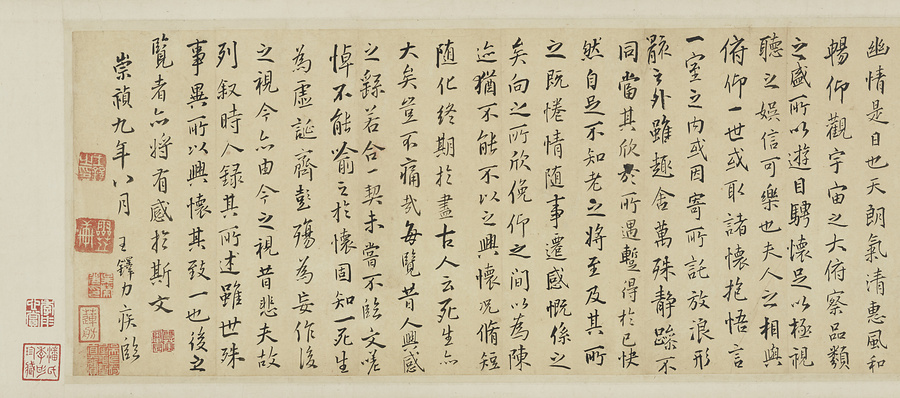 幽情是日也天朗氣清惠風和
暢仰觀宇宙之大俯察品類
之盛所以遊目騁懷足以極視
聽之娛信可樂也夫人之相與
俯仰一世或取諸懷抱悟言
一室之內或因寄所託放浪形
骸之外雖趣舍萬殊靜躁不
同當其欣於所遇暫得於己快
然自足不知老之將至及其所
之既惓情隨事遷感慨係之
矣向之所欣俛仰之間以為陳
迹猶不能不以之興懷況脩短
随化終期於盡古人云死生亦
大矣豈不痛哉每覽昔人興感
之繇若合一契未嘗不臨文嗟
悼不能喻之於懷固知一死生
為虛誕齊彭殤為妄作後
之視今亦由今之視昔悲夫故
列叙時人錄其所述雖世殊
事異所以興懷其致一也後之
覽者亦將有感於斯文
崇禎九年八月 王鐸力疾臨